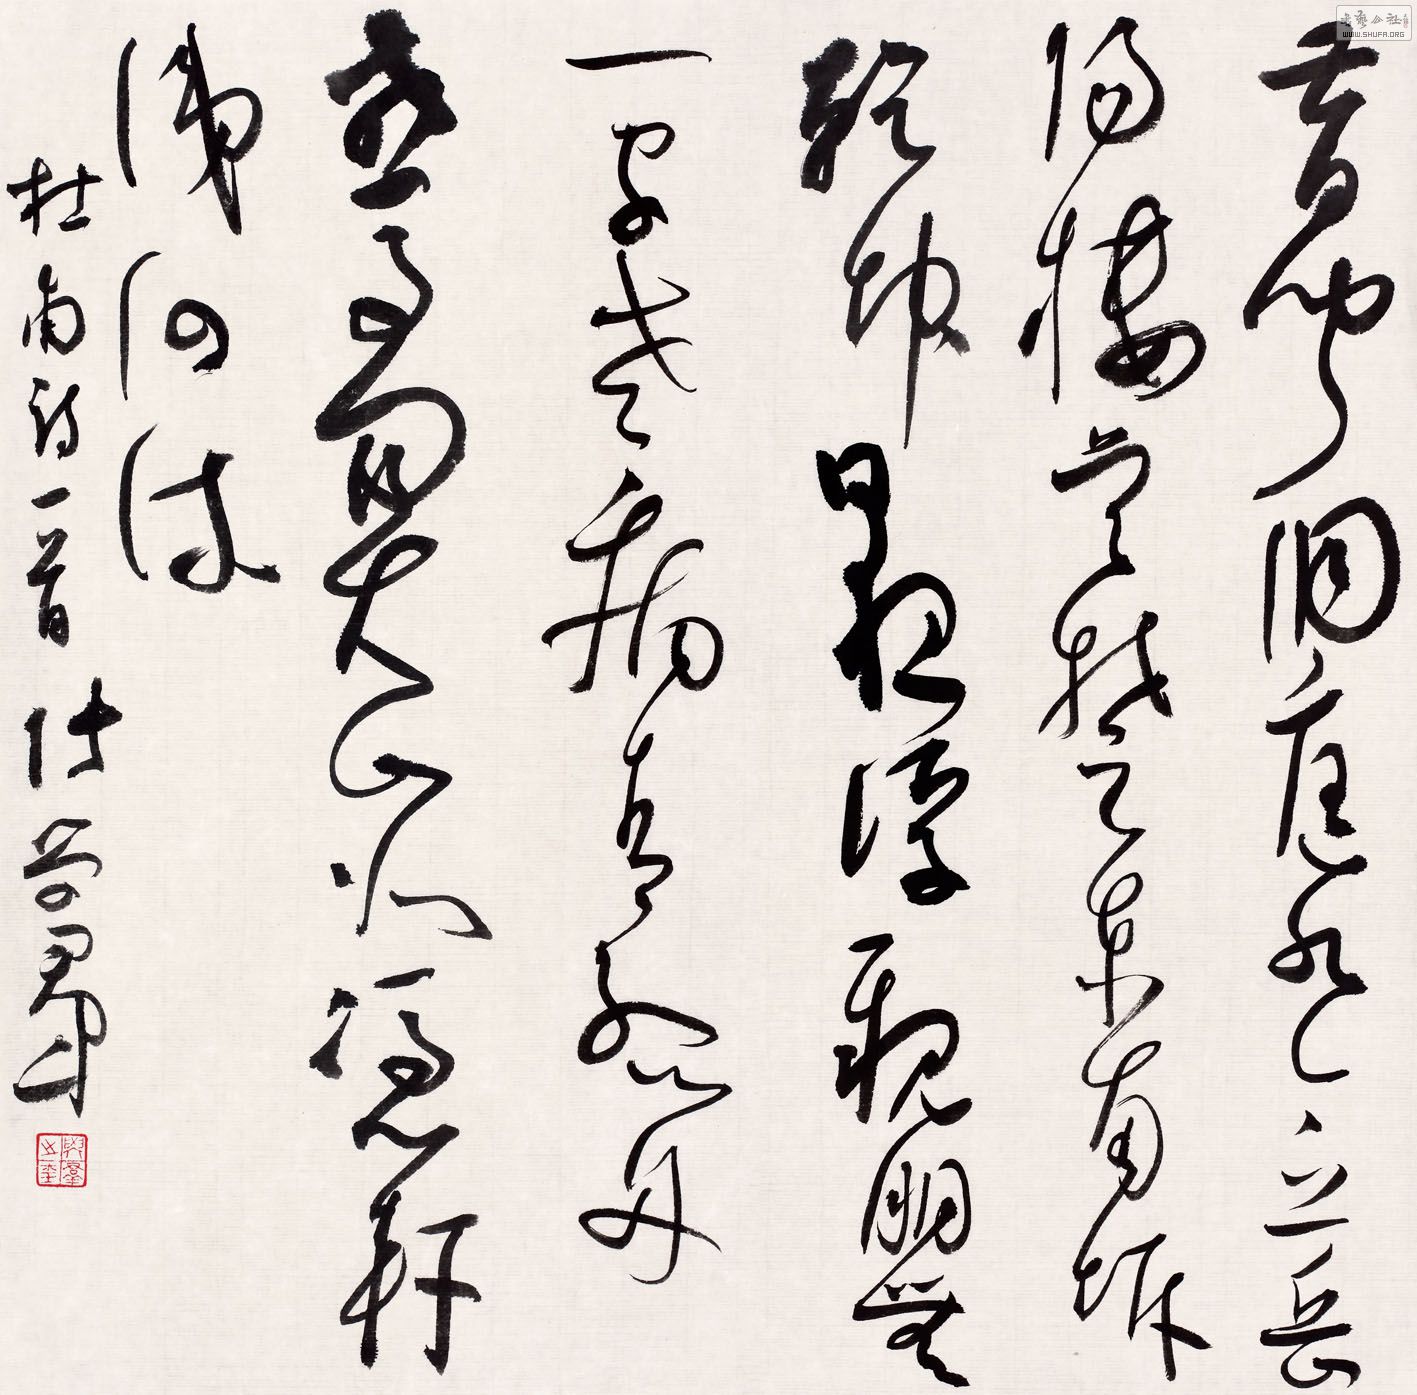 書藝公社
WWW.SHUFA.ORG
昔聞洞庭水今上岳
陽樓吳楚東南坼
乾坤日夜浮親朋無
一字老病有孤舟
馬關山北憑軒
涕泗流
杜甫詩一首